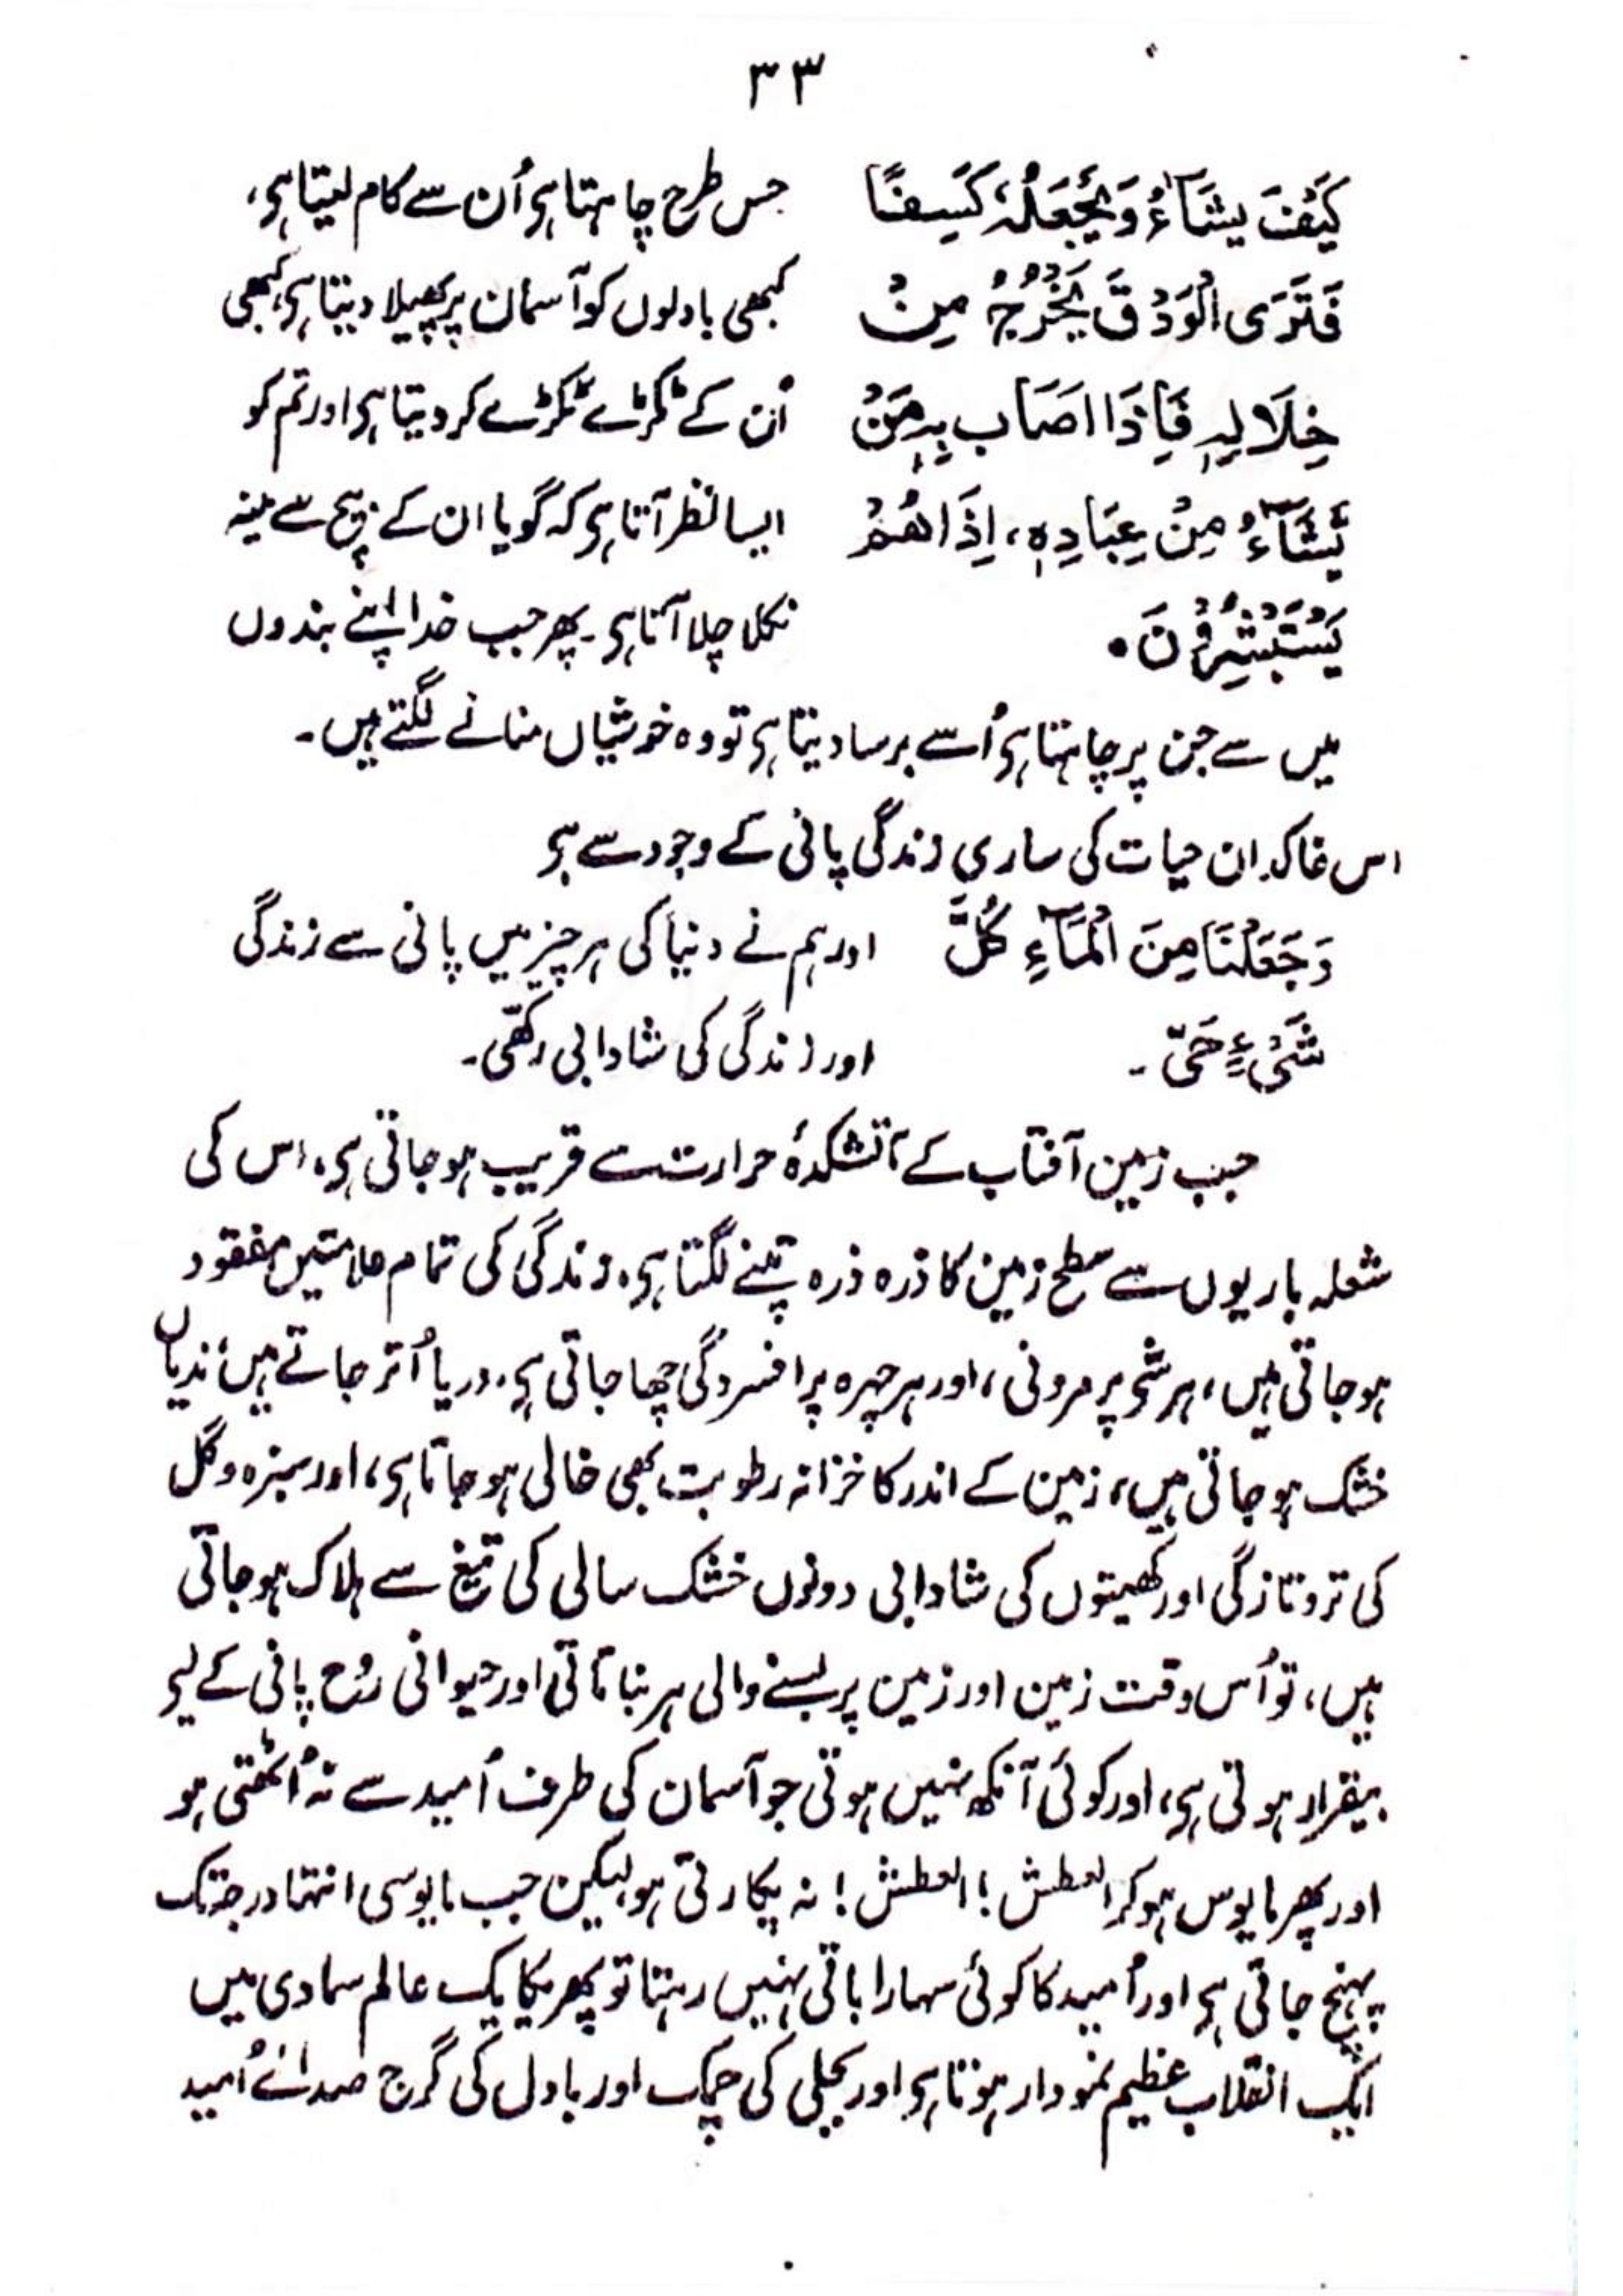 ۳۳
كَيْفَ يَشَآءُ وَيَجْعَلُهٗ كَسِفًا جس طرح چاہتا ہی اُن سے کام لیتا ہی،
فَتَرَى الْوَدْقَ يَخْرُجُ مِنْ کبھی بادلوں کو آسمان پر پھیلا دیتا ہی، کبھی
خِلَالِهٖ فَاِذَا اصَاب بِهٖ مَنْ اُن کے ٹکڑے ٹکڑے کر دیتا ہی اور تم کو
يَّشَآءُ مِنْ عِبَادِهٖ، اِذَا هُمْ ایسا نظر آتا ہی کہ گویا ان کے بیچ سے مینہ
يَسْتَبْشِرُوْنَ ۰ نکلا چلا آتا ہی۔ پھر جب خدا اپنے بندوں
میں سے جن پر چاہتا ہی اُسے برسا دیتا ہی تو وہ خوشیاں منانے لگتے ہیں۔
اس خاکدان حیات کی ساری زندگی پانی کے وجود سے ہی
وَجَعَلْنَا مِنَ الْمَآءِ كُلَّ اور ہم نے دنیا کی ہر چیز میں پانی سے زندگی
شَيْءٍ حَيّ ۔ اور زندگی کی شادابی رکھّی۔
جب زمین آفتاب کے آتشکدۂ حرارت سے قریب ہو جاتی ہی، اس کی
شعلہ باریوں سے سطح زمین کا ذرہ ذرہ تپنے لگتا ہی، زندگی کی تمام علامتیں مفقود
ہو جاتی ہیں، ہر شی پر مرونی، اور ہر چہرہ پر افسردگی چھا جاتی ہی، دریا اُتر جاتے ہیں، ندیاں
خشک ہو جاتی ہیں، زمین کے اندر کا خزانہ رطوبت بھی خالی ہو جاتا ہی، اور سبزہ و گل
کی تروتازگی اور کھیتوں کی شادابی دونوں خشک سالی کی تیغ سے ہلاک ہو جاتی
ہیں، تو اُس وقت زمین اور زمین پر بسنے والی ہر نباتاتی اور حیوانی رُوح پانی کے لیی
بیقرار ہوتی ہی، اور کوئی آنکھ نہیں ہوتی جو آسمان کی طرف اُمید سے نہ اُٹھتی ہو
اور پھر مایوس ہو کر العطش! العطش! نہ پکارتی ہو، لیکن جب مایوسی انتہا درجہ تک
پہنچ جاتی ہی اور اُمید کا کوئی سہارا باقی نہیں رہتا تو پھر یکایک عالم سماوی میں
ایک انقلاب عظیم نمودار ہوتا ہی اور بجلی کی چمک اور بادل کی گرج صدائے اُمید